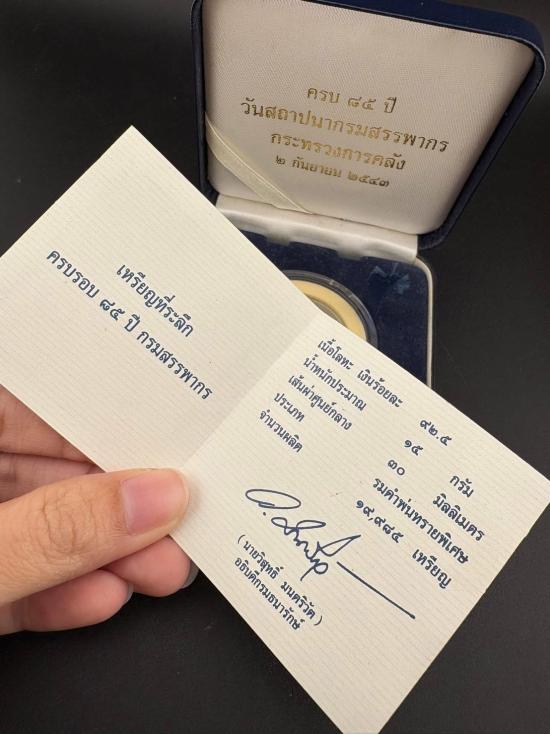 ครบ ๘๕ ปี
วันสถาปนากรมสรรพากร
กระทรวงการคลัง
๒ กันยายน ๒๕๔๓
เหรียญที่ระลึก
ครบรอบ ๘๕ ปี กรมสรรพากร
เนื้อโลหะ เงินร้อยละ ๙๒.๕
น้ำหนักประมาณ ๑๕ กรัม
เส้นผ่าศูนย์กลาง ๓๐ มิลลิเมตร
ประเภท รมดำพ่นทรายพิเศษ
จำนวนผลิต ๑๙,๙๘๕ เหรียญ
( นายวิสุทธิ์ มนตริวัต )
อธิบดีกรมธนารักษ์